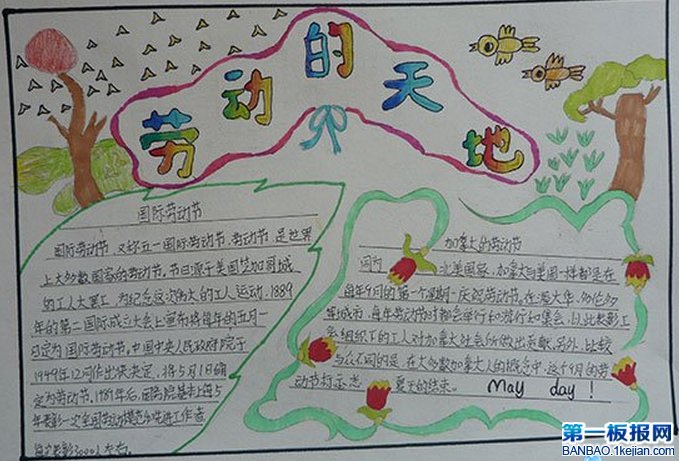 劳动的天地
国际劳动节
国际劳动节，又称五一国际劳动节，劳动节，是世界
上大多数国家的劳动节。节日源于美国芝加哥城
的工人大罢工，为纪念这次伟大的工人运动，1889
年的第二国际成立大会上宣布将每年的五月一
日定为国际劳动节。中国中央人民政府政院于
1949年12月作出决定，将5月1日确
定为劳动节，1989年后，国务院基本上每5
年表彰一次全国劳动模范和先进工作者，
每次表彰3000人左右。
加拿大的劳动节
同为 北美国家，加拿大与美国一样都是在
每年9月的第一个星期一庆祝劳动节。在渥太华、多伦多
等城市，每年劳动节时都会举行和游行和集会，以此表彰工
会组织下的工人对加拿大社会所做出贡献。另外，比较
与众不同的是，在大多数加拿大人的概念中，这个9月的劳
动节标志志 夏天的结束。 May day！
第一板报网
BANBAO.1kejian.com